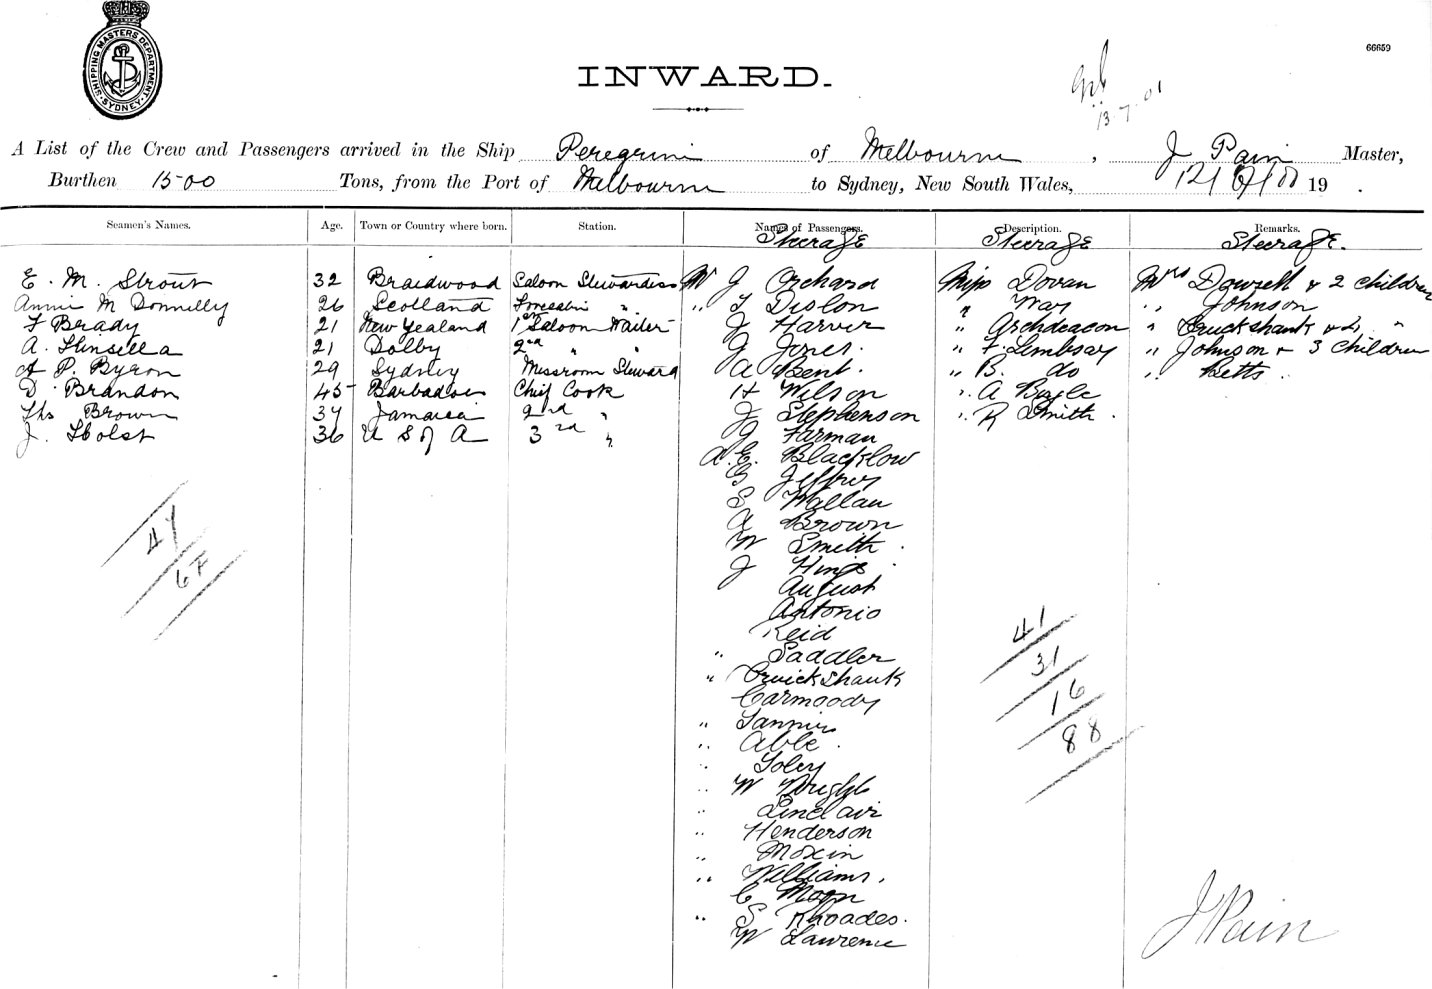 SHIPPING MASTERS DEPARTMENT
SYDNEY
66659
INWARD.
13.7.01
A List of the Crew and Passengers arrived in the Ship Peregrine of Melbourne, J Pain Master,
Burthen 1500 Tons, from the Port of Melbourne to Sydney, New South Wales, 19 .
Seamen's Names. Age. Town or Country where born. Station. Names of Passengers. Description. Remarks.
Steerage Steerage Steerage.
E. M. Strout 32 Braidwood Saloon Stewardess Mr J Orchard Miss Dovan Mrs Dowsett & 2 children
Annie M Donnelly 26 Scotland Forecabin " " T Dislon " Way " Johnson
F Brady 21 New Zealand 1st Saloon Waiter J Harver " Archdeacon " Cruickshank & "
A. Hinsella 21 Dolby 2nd " " J Jones. " F. Limbsay " Johnson & 3 children
A P. Byron 29 Sydney Messroom Steward A Bent. " B. do " Betts
D. Brandon 45 Barbadoes Chief Cook H Wilson " A Boyle
Ths Brown 34 Jamaica 2nd " J Stephenson " R Smith
J. Holst 36 U S of A 3rd " J Farman
A. E. Blacklow
G Jeffrey
S Wallan
A Brown
W Smith
J Hings
August
Antonio
Reid
" Saddler
" Cruickshank
Carmoody
" Tannin
" Able
" Foley
" W Wright
" Sinclair
" Henderson
" Moxin
" Williams.
C Moon
" S Rhoades.
W Lawrence
47
67
41
31
16
88
J Pain